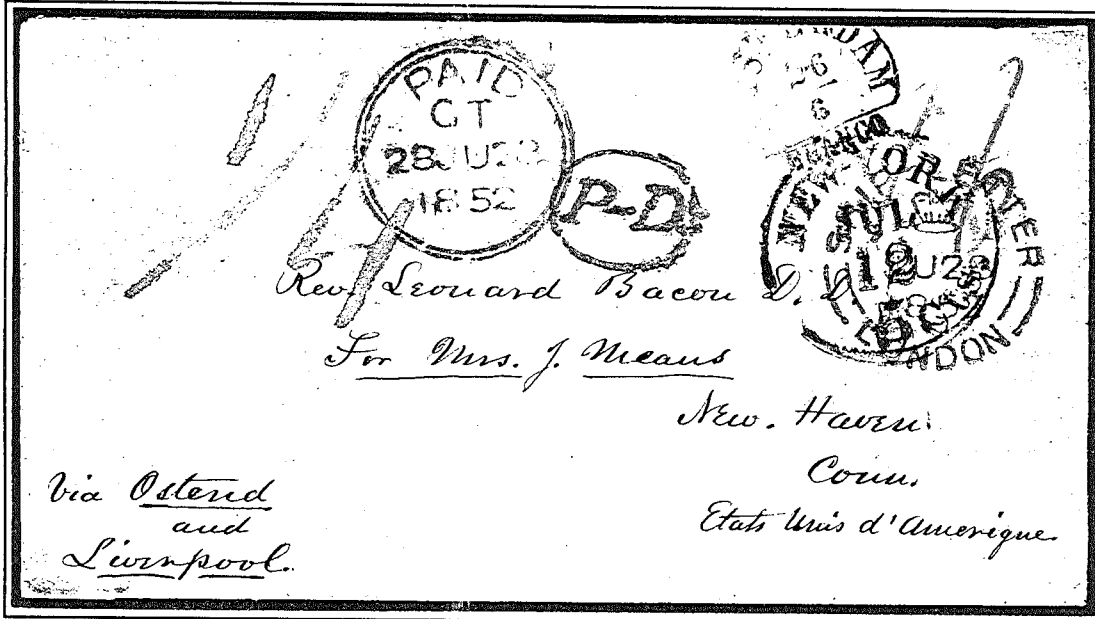 PAID
CT
28JU28
1852
P-D.
DAM
26
6
FRANCO
NEW YORK
JUL
12
LONDON
Rev. Leonard Bacon D. D.
For Mrs. J. Means
New. Haven.
Conn.
Etats Unis d'Amerique.
Via Ostend
and
Liverpool.